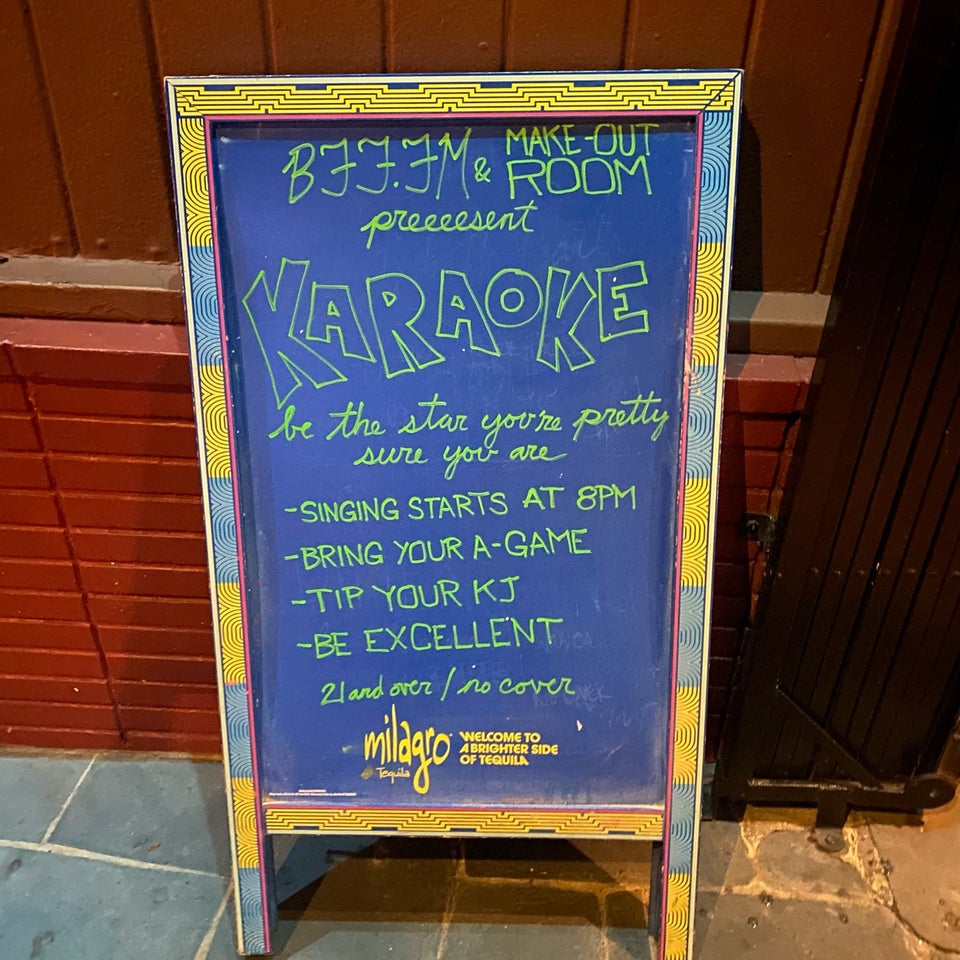 BFF.FM & MAKE-OUT ROOM
preeeesent
KARAOKE
be the star you're pretty
sure you are
-SINGING STARTS AT 8PM
-BRING YOUR A-GAME
-TIP YOUR KJ
-BE EXCELLENT
21 and over / no cover
milagro
Tequila
WELCOME TO
A BRIGHTER SIDE
OF TEQUILA